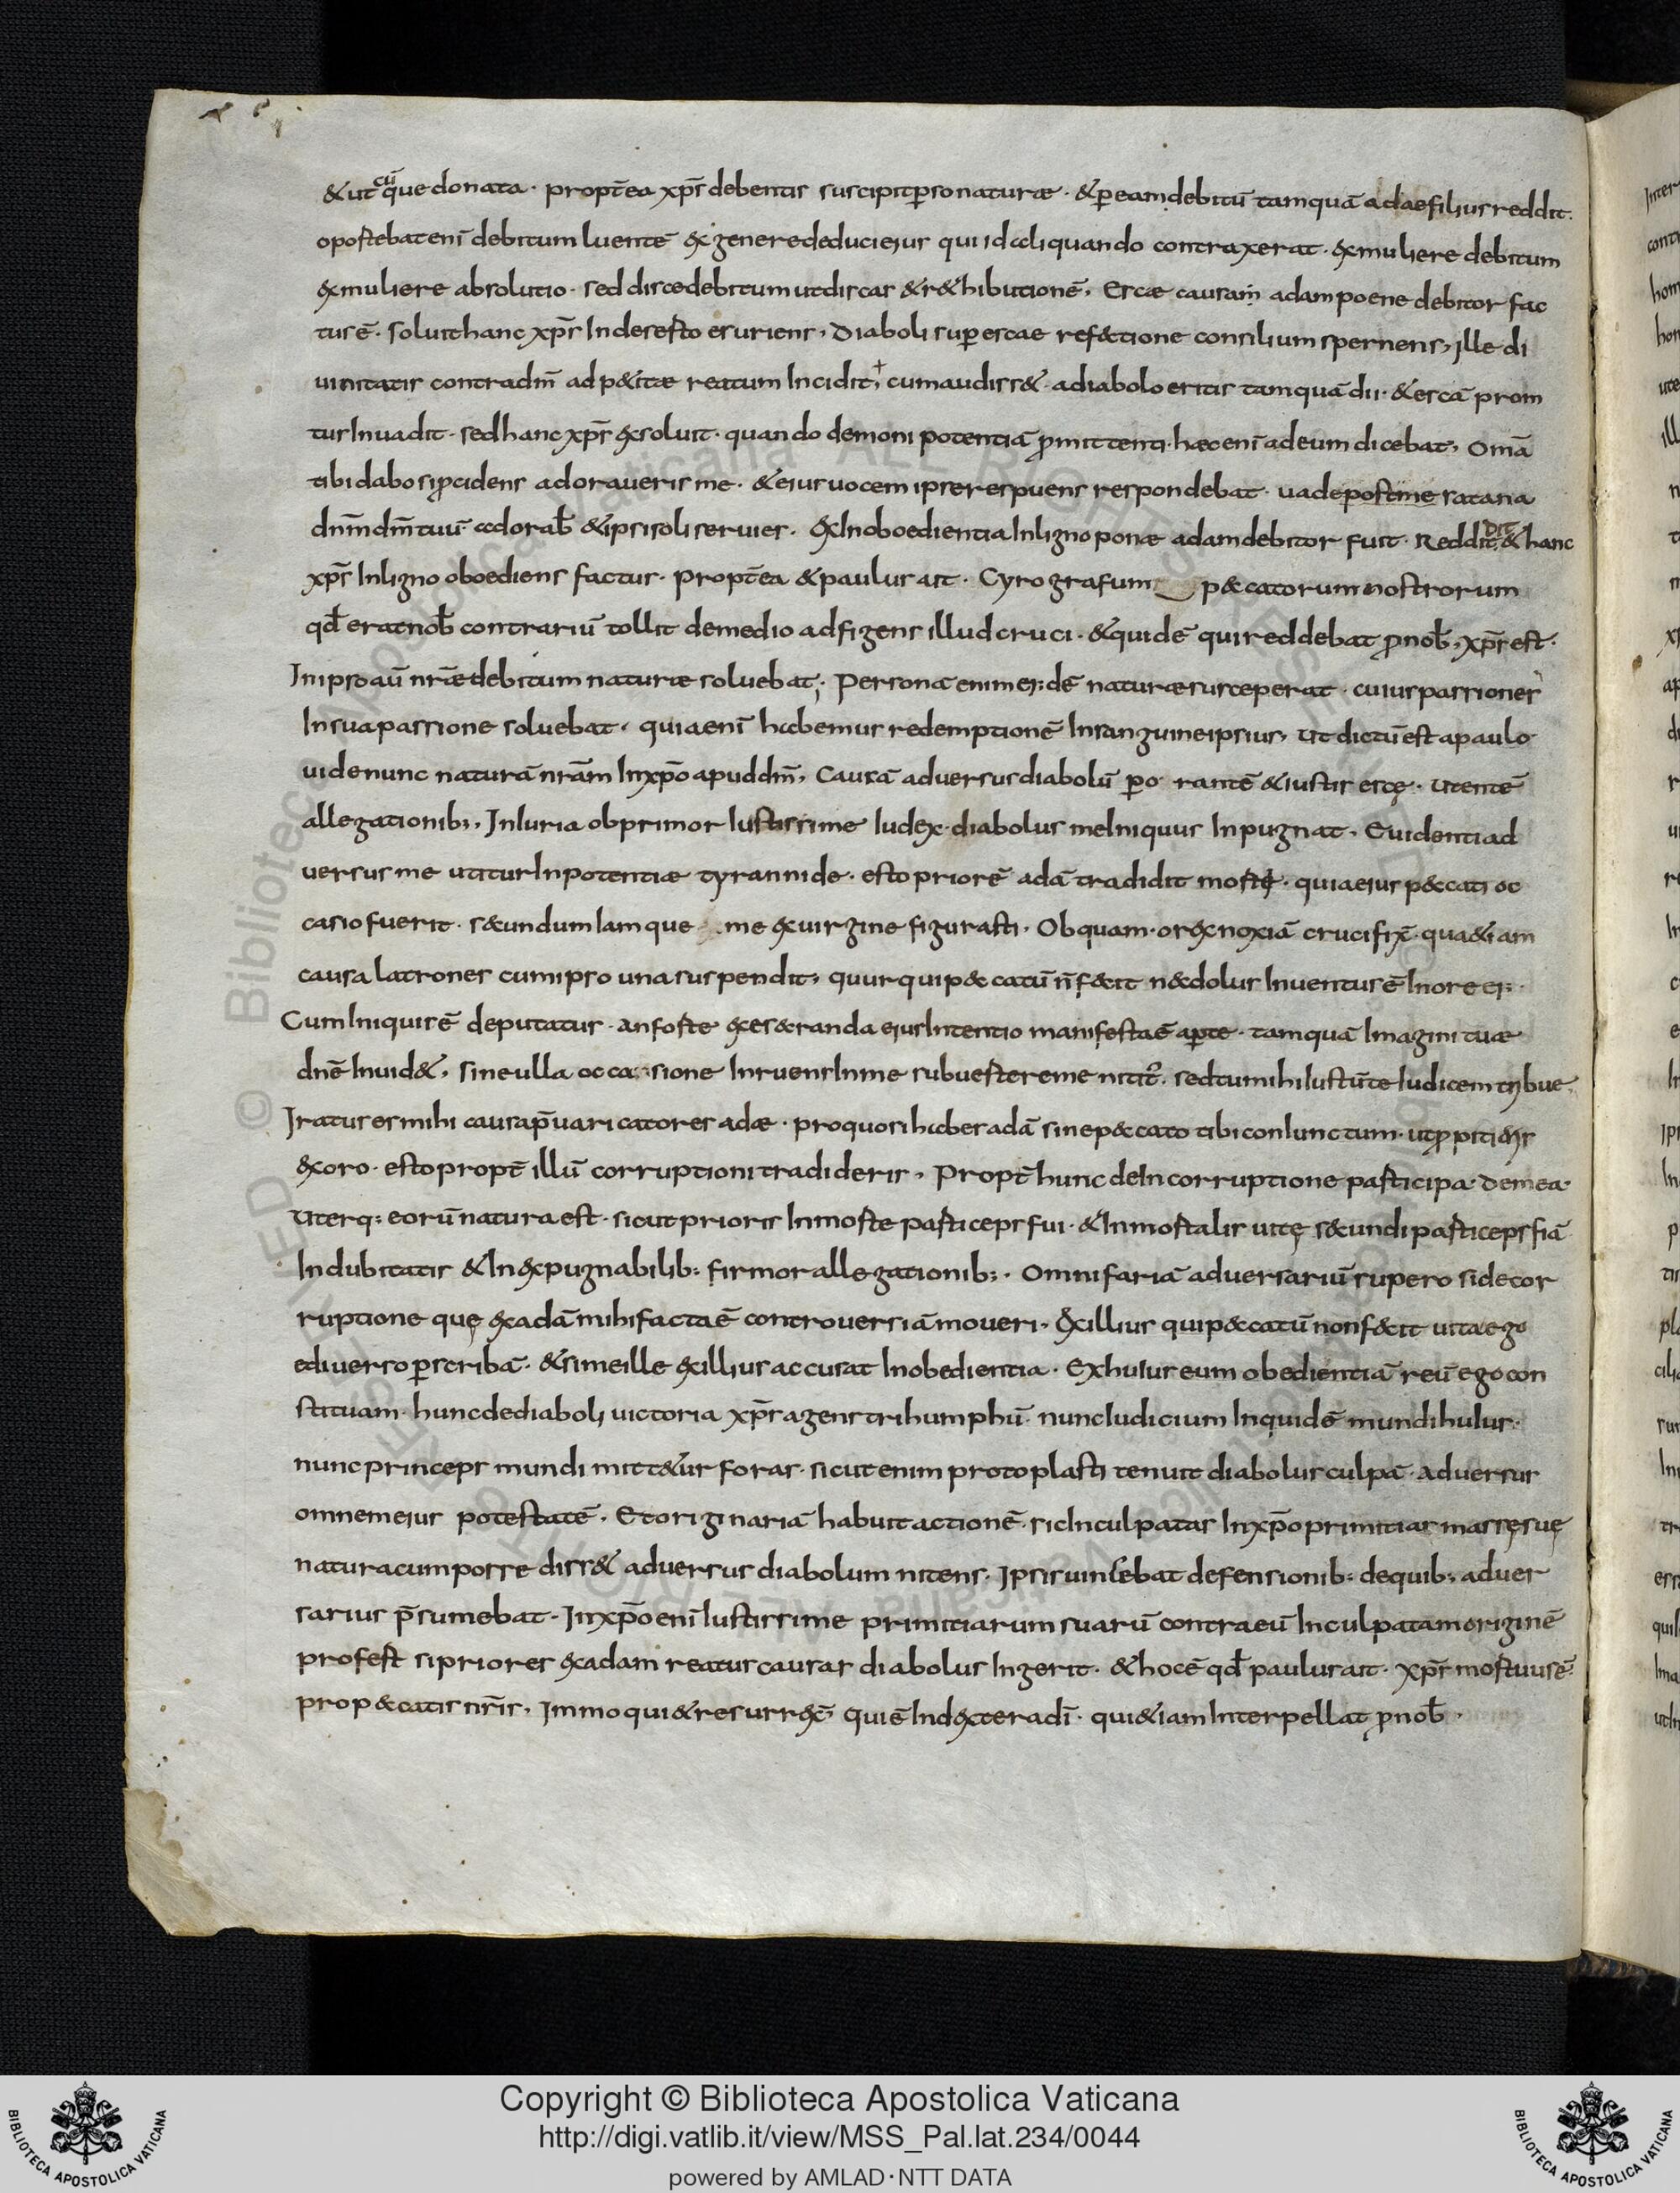 &ut cū que donata · propt̄ea xp̄s debentis suscipit p̱sonaturæ · & p̱ eam debitū tamquā adae filius reddit ·
oportebat enī debitum luentē ex genere deduci eius qui id aliquando contraxerat · ex muliere debitum
ex muliere absolutio · sed disce debitum ut discas & r&hibutionē , Escæ causam adam poene debitor fac
tus ē · soluit hanc xp̄s In deserto esuriens , Diaboli super escae ref&ctione consilium spernens , Ille di
uinitatis contra dm̄ adp&itæ reatum Incidit , cum audiss& · a diabolo eritis tamquā dii · & escā prom
tus Inuadit · sed hanc xp̄s exsoluit · quando demoni potentiā ꝓmittenti · hæc enī ad eum dicebat , Omā
tibi dabo si ꝓcidens adoraueris me · & eius uocem ipse respuens respondebat · uade postme satana
dnm̄ dm̄ tuū adorab̄ & ipsi soli seruies · Ex Inoboedientia In ligno ponæ adam debitor fuit · Reddit dit & hanc
xp̄s In ligno oboediens factus · propt̄ea & paulus ait · Cyrografum p&catorum nostrorum
qd̄ erat nob̄ contrariū tollit de medio adfigens illud cruci · & quidē qui reddebat ꝓ nob̄ , xp̄s est ·
In ipso aū nr̄æ debitum naturæ soluebat ; Persona enim ei;dē naturæ susceperat · cuius passiones
In sua passione soluebat , quia enī habemus redemptionē In sanguine ipsius , ut dictū est a paulo
uide nunc naturā nr̄am In xp̄o apud dm̄ , Causā aduersus diabolū ꝑo rantē & iustis estę · utentē
allegationib; , In Iuria obprimor Iustissime Iudex · diabolus me Iniquus Inpugnat , Euidenti ad
uersus me utitur In potentiæ tyrannide · esto priorē adā tradidit morte · quia eius p&ccati oc
casio fuerit · s&undum Iam que me ex uirgine figurasti , Ob quam · or ex noxiā crucifixē · qua &iam
causa latrones cum ipso una suspendit , quur qui p&catū n̄ f&cit n& dolus Inuentus ē In ore ei;
Cum Iniquis ē deputatus · an forte exes&randa eius Intentio manifesta ē aꝑte · tamquā Imagini tuæ
dnē Inuid& , sine ulla occa sione Inruens In me subuertere me nitit᷑ · sed tu mihi Iustū te Iudicem tribue
Iratus es mihi causa p̄uaricatores adæ · pro quo si habes adā sine p&cato tibi con Iunctum · ut ꝓpiti&is
exoro · esto propt̄ illū corruptioni tradideris , Propt̄ hunc de Incorruptione participa · De mea
Uterq; eorū natura est · sicut prioris In morte particeps fui · & Inmortalis uitę s&undi particeps fiā
Indubitatis & In expugnabilib; firmor allegationib; · Omnifariā aduersariū supero si de cor
ruptione que ex adā mihi facta ē controuersiā moueri · Ex illius qui p&ccatū non f&cit uita ego
ediuerso ꝑscribā · & si me ille ex illius accusat Inobedientia · Ex huius eum obedientiā reū ego con
stituam · hunc de diaboli uictoria xp̄s agens trihumphū · nunc Iudicium Inquidē mundi huius ·
nunc princeps mundi mitt&ur foras · sicut enim protoplasti tenuit diabolus culpā · aduersus
omnem eius potestatē · Et originariā habuit actionē · sic Inculpatas In xp̄o primitias massę suę
natura cum posse diss& aduersus diabolum nitens · Ipsis uincebat defensionib; de quib; aduer
sarius p̄sumebat · In xp̄o enī Iustissime primitiarum suarū contra eū Inculpatam originē
profert si priores ex adam reatus causas diabolus Ingerit · & hoc ē qd̄ paulus ait · xp̄s mortuus ē
pro p&catis nr̄is , Immo qui & resurrex̄ qui ē In dextera dī · qui &iam Interpellat ꝓ nob̄ ·
Copyright © Biblioteca Apostolica Vaticana
http://digi.vatlib.it/view/MSS_Pal.lat.234/0044
powered by AMLAD·NTT DATA
BIBLIOTECA APOSTOLICA VATICANA
BIBLIOTECA APOSTOLICA VATICANA